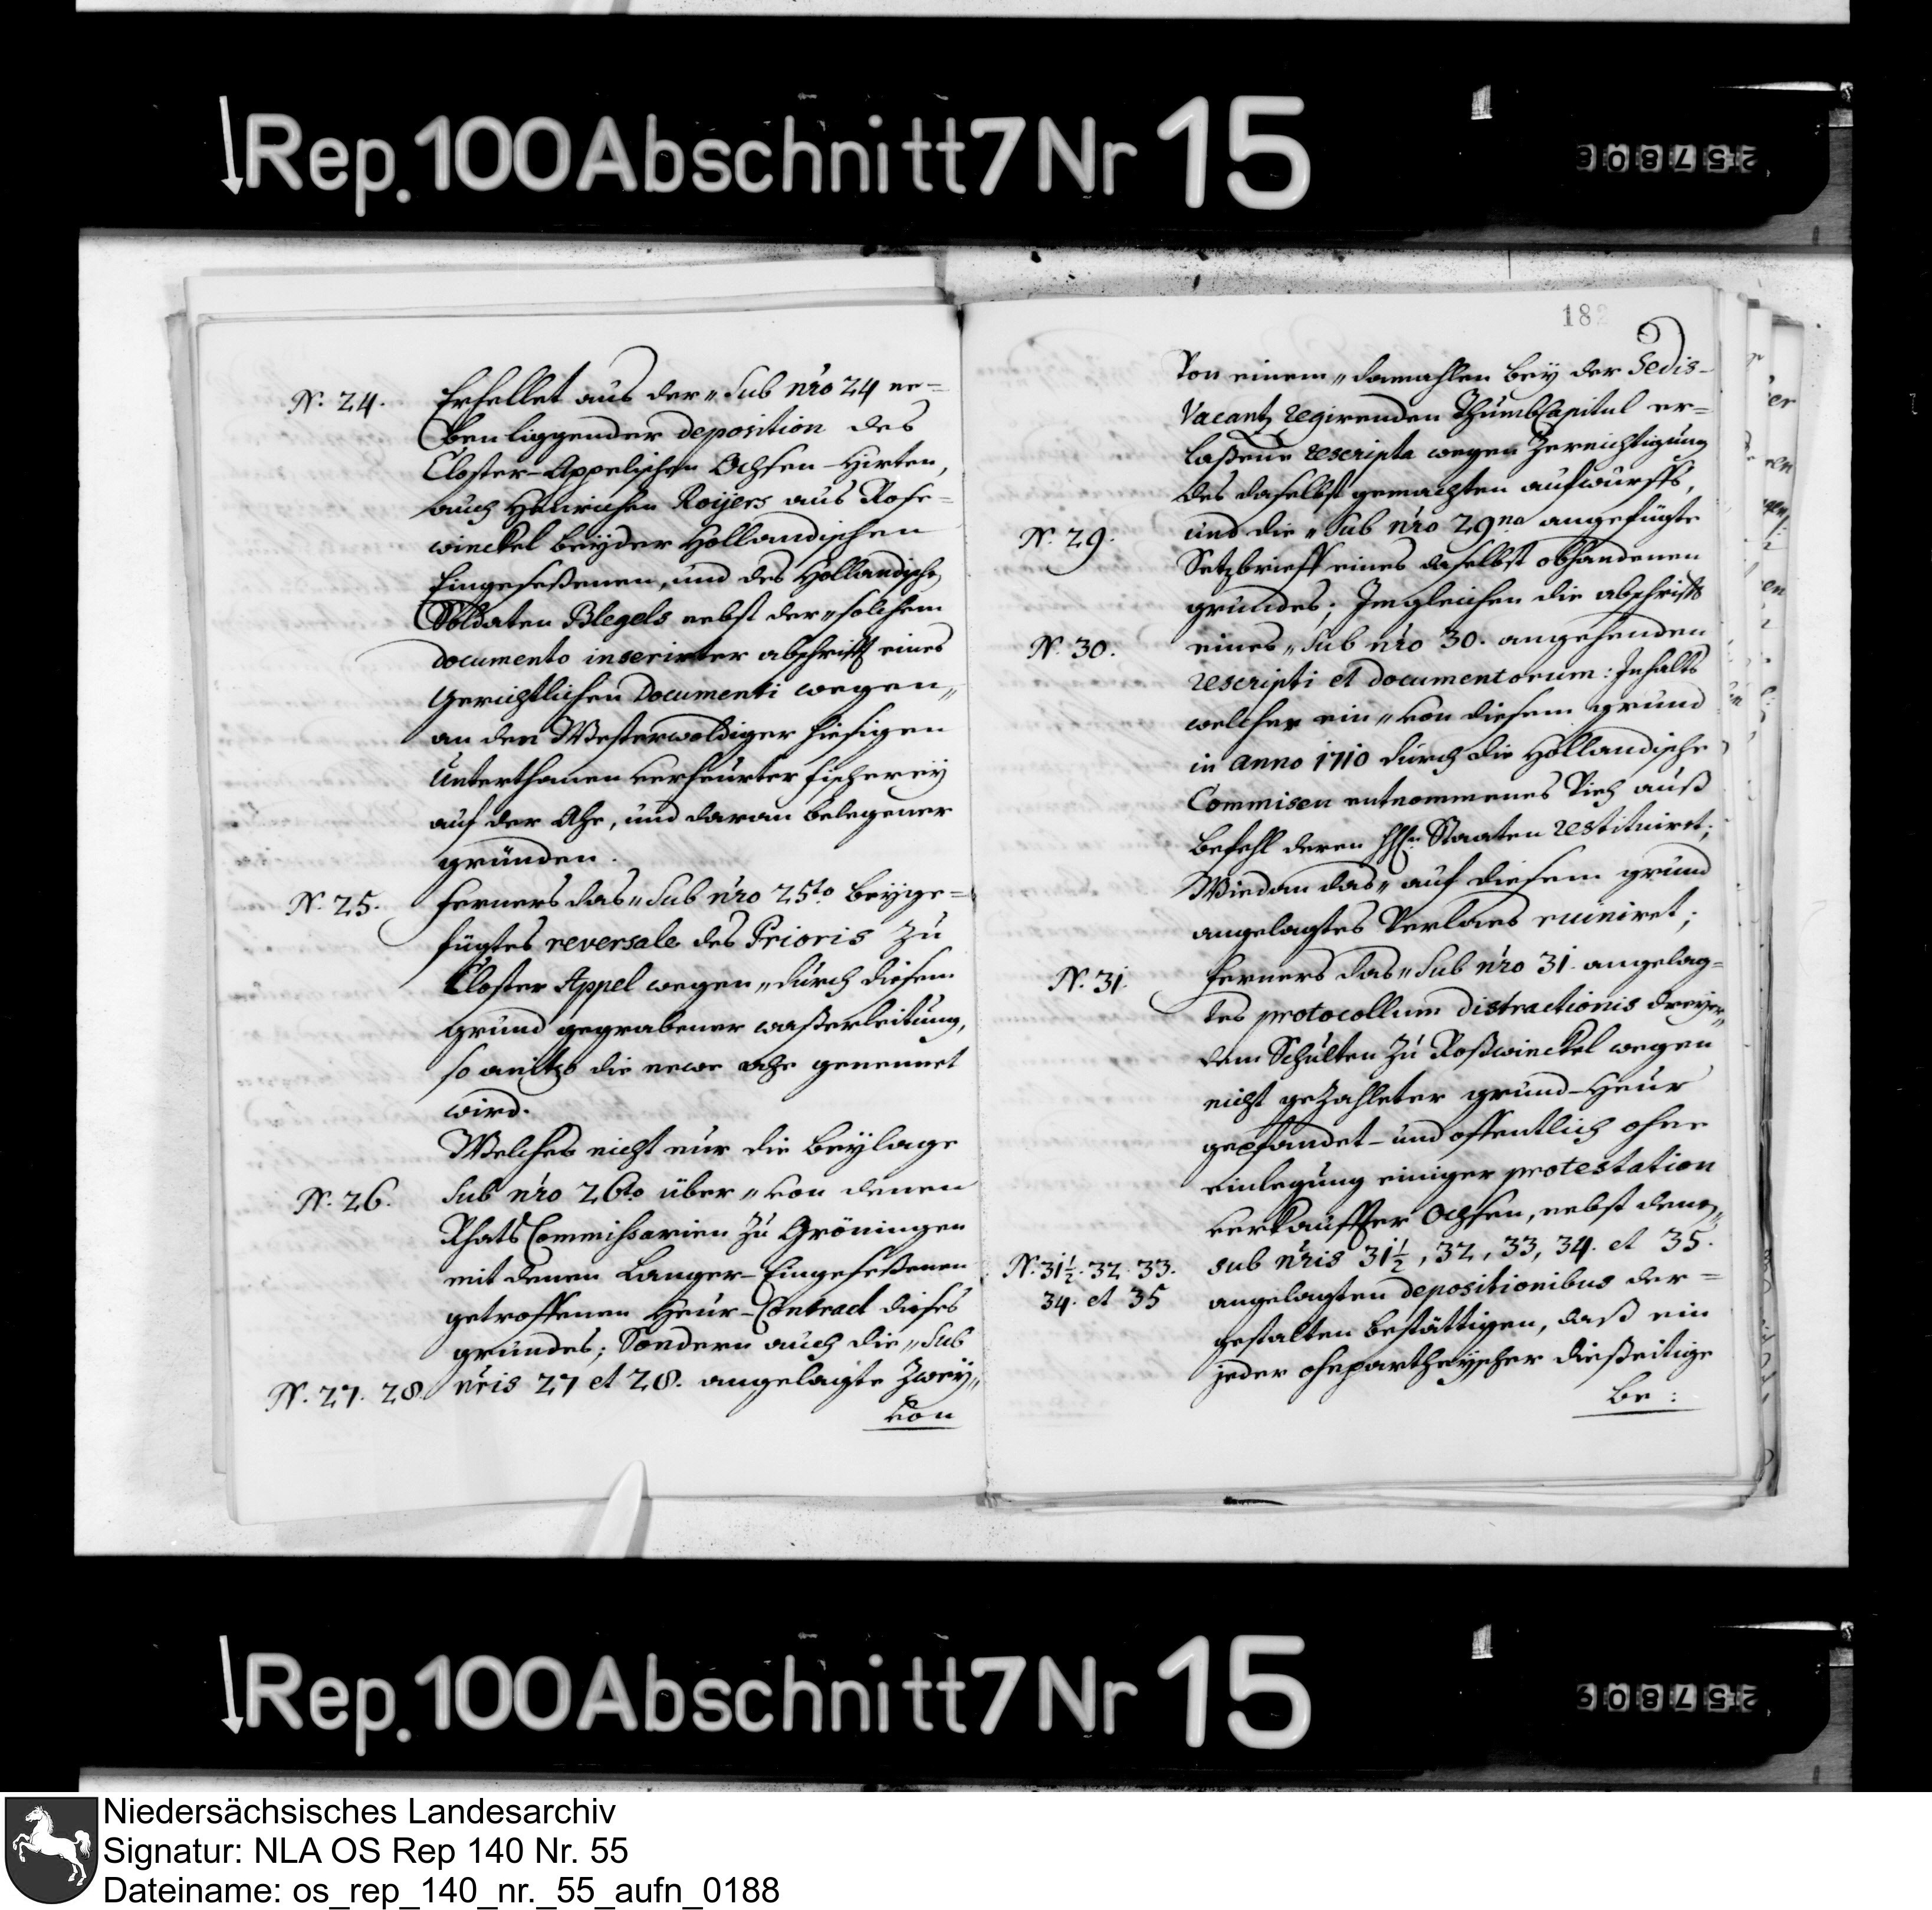 Rep. 100 Abschnitt 7 Nr 15
257808
N. 24. Erhellet aus der„ Sub nro 24 ne=
ben liggender deposition des
Closter-Appelschen Ochsen-Hirten,
auch Henrichen Roijers aus Rose=
winckel beyder Hollandischen
Eingeseßenen, und des Hollandische
Soldaten Blegels nebst der„ solchem
documento inserirter abschrifft eines
Gerichtlichen Documenti wegen„
an den Westerwoldiger hiesigen
Unterthanen verheurter fischerey
auf der Ahe, und daran belegener
gründen.
N. 25. ferners das„ Sub nro 25to beyge=
fügtes reversale des Prioris zu
Closter Appel wegen„ durch diesem
grund gegrabener waßerleitung,
so anitzo die newe ahe genennet
wird.
Welches nicht nur die beylage
N. 26. Sub nro 26to über„ von denen
Rhats Commissarien zu Gröningen
mit denen Langer-Eingeseßenen
getroffenen Heur-Contract dieses
grundes; Sondern auch die„ Sub
N. 27. 28. nris 27 et 28. angelagte Zwey„
von
182
Von einem„ damahlen bey der Sedis-
Vacantz regirenden Thumb Capitul er=
laßene rescripta wegen
des daselbst gemachten aufwurffs,
N. 29. und die„ Sub nro 29no angefügte
Setzbrieff eines daselbst obhandenen
grundes; Imgleichen die abschrifft
N. 30. eines„ Sub nro 30. angehenden
rescripti et documentorum: Inhalts
welcher ein„ von diesem grund
in anno 1710 durch die Hollandische
Commisen entnommenes Vieh auß
befehl deren Staaten restituiret;
Wie dan das„ auf diesem grund
angelagtes Verlaes ruiniret;
N. 31. ferners das„ Sub nro 31. angelag=
tes protocollum distractionis dreyer„
dem Schulten zu Roßwinckel wegen
nicht gezahleter grund-Heur
gepfandet- und offentlich ohne
einlegung einiger protestation
verkauffter Ochsen, nebst denen„
N. 31½. 32. 33. sub nris 31½, 32, 33, 34. et 35.
34. et 35 angelagten depositionibus der=
gestalten bestättigen, daß ein
jeder ohnpartheyscher dießeitige
be:
Rep. 100 Abschnitt 7 Nr 15
257809
Niedersächsisches Landesarchiv
Signatur: NLA OS Rep 140 Nr. 55
Dateiname: os_rep_140_nr._55_aufn_0188